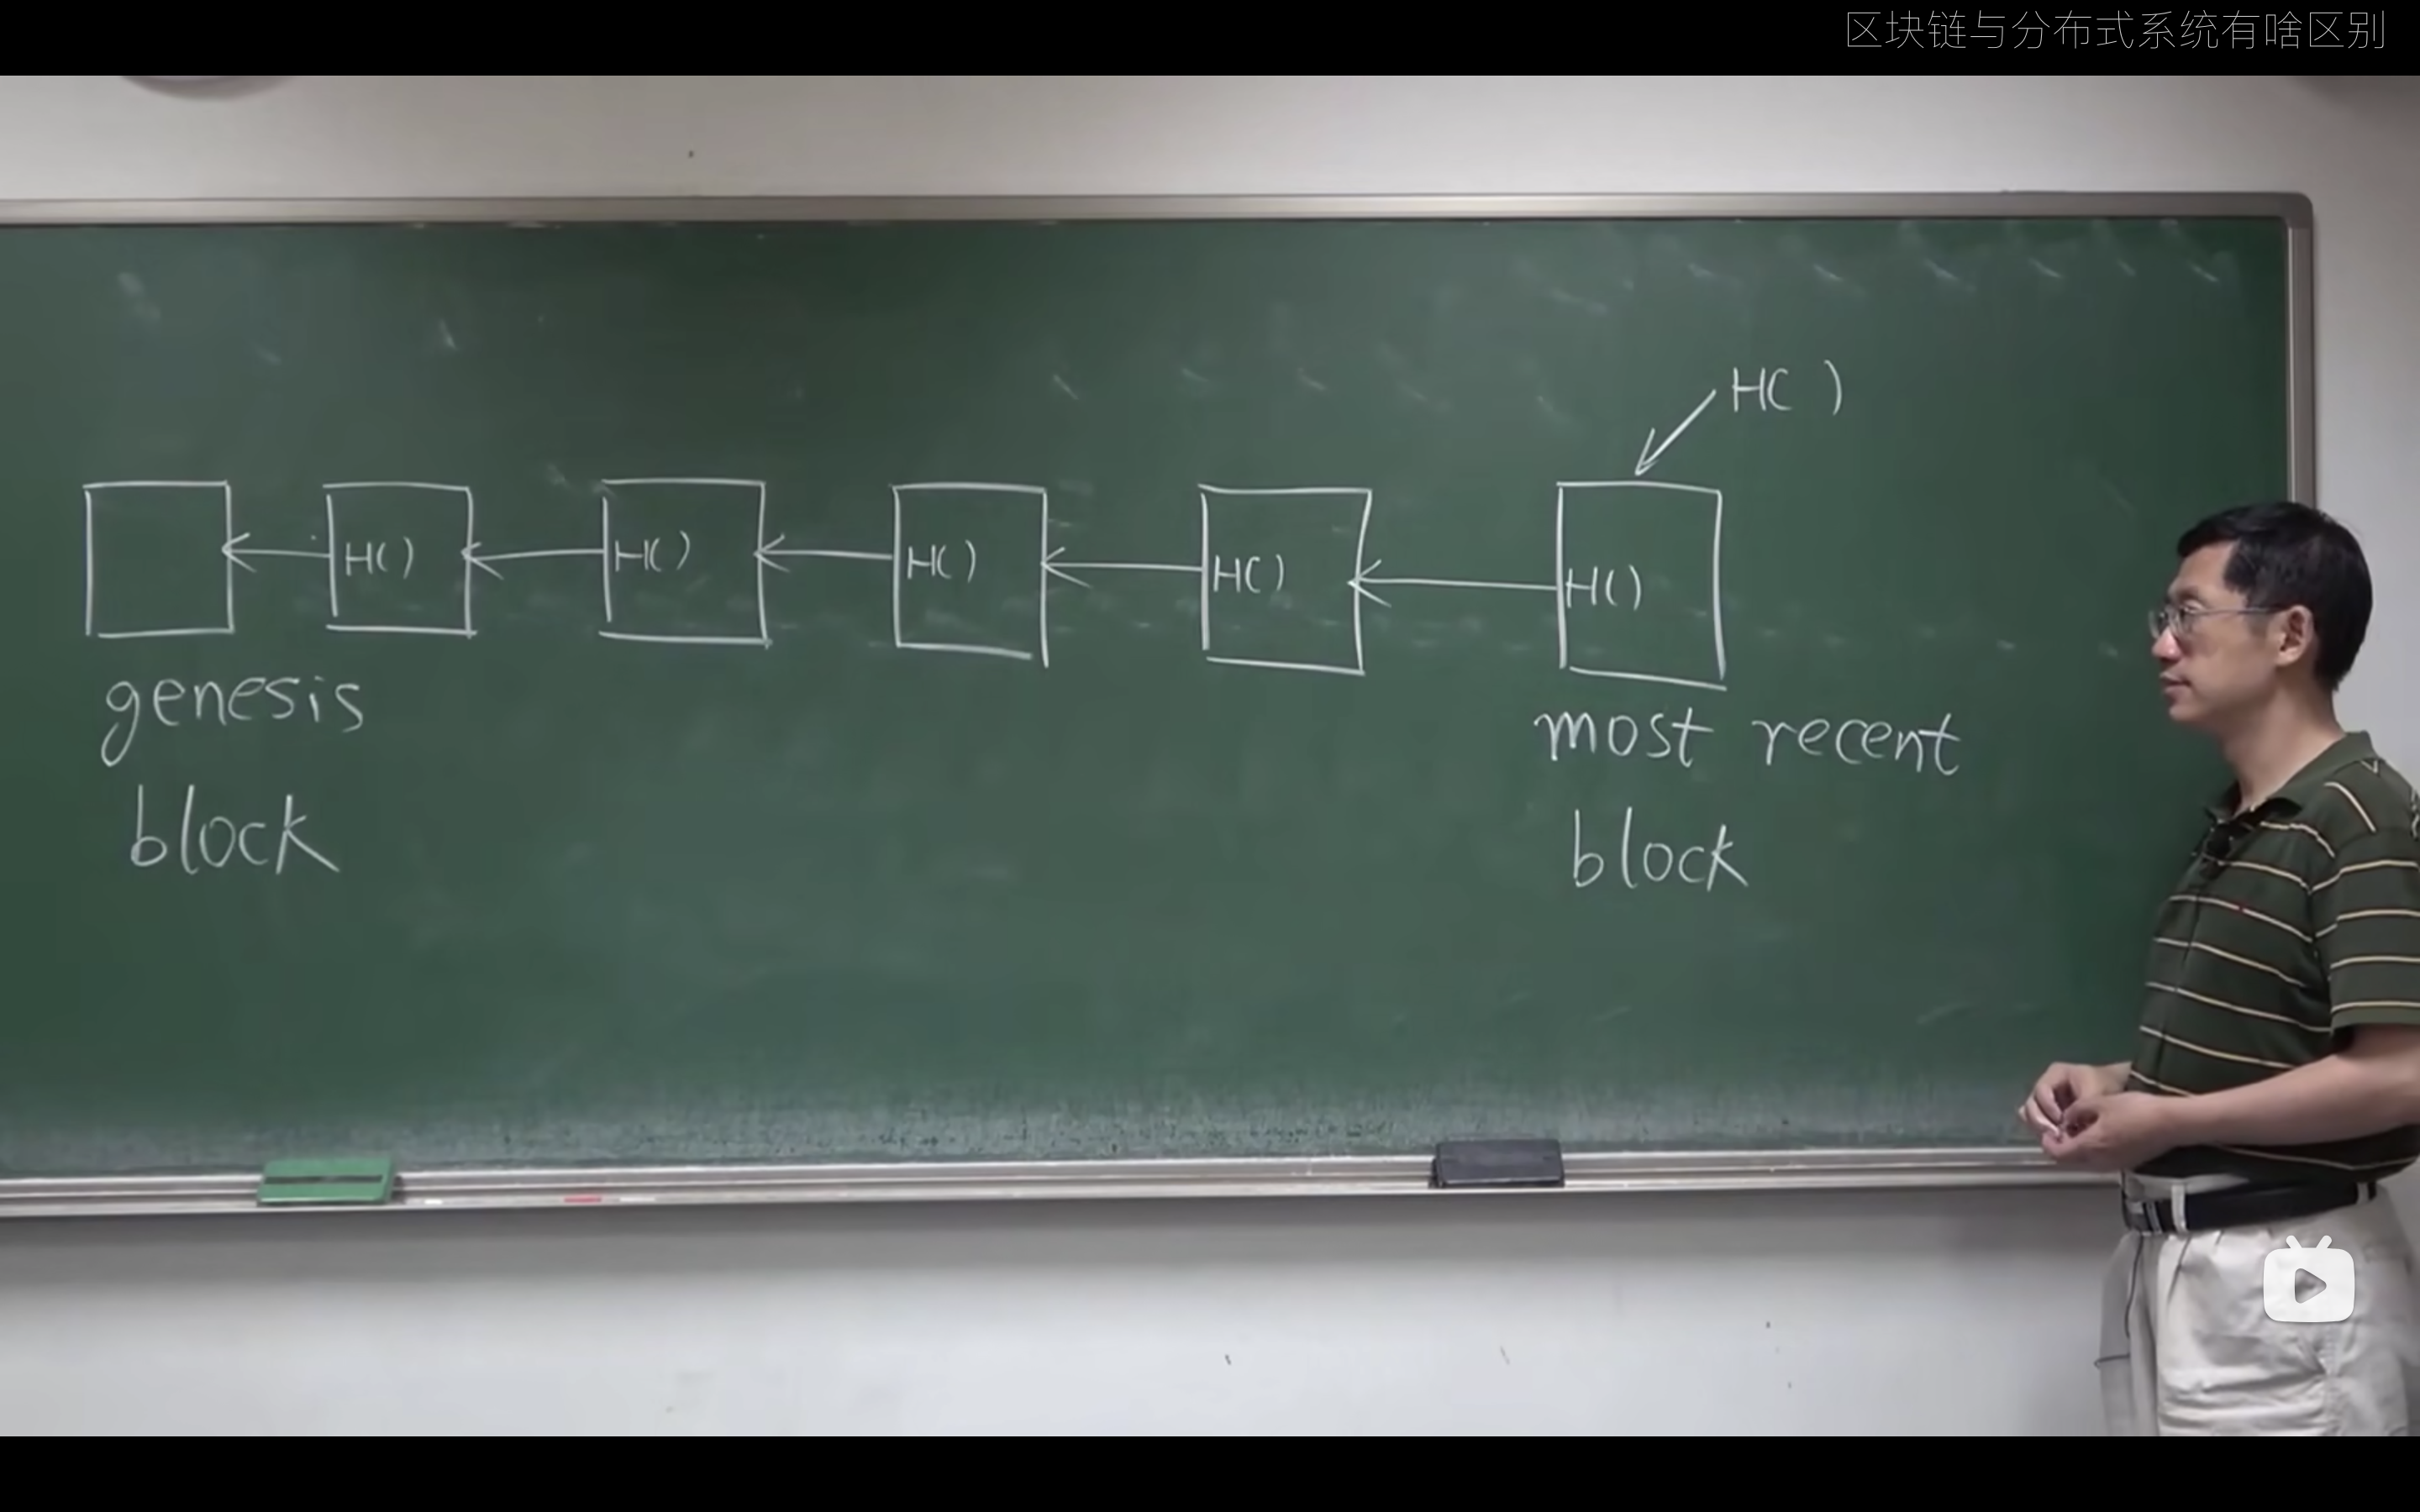 区块链与分布式系统有啥区别
H( )
H()
H()
H()
H()
H()
genesis
block
most recent
block